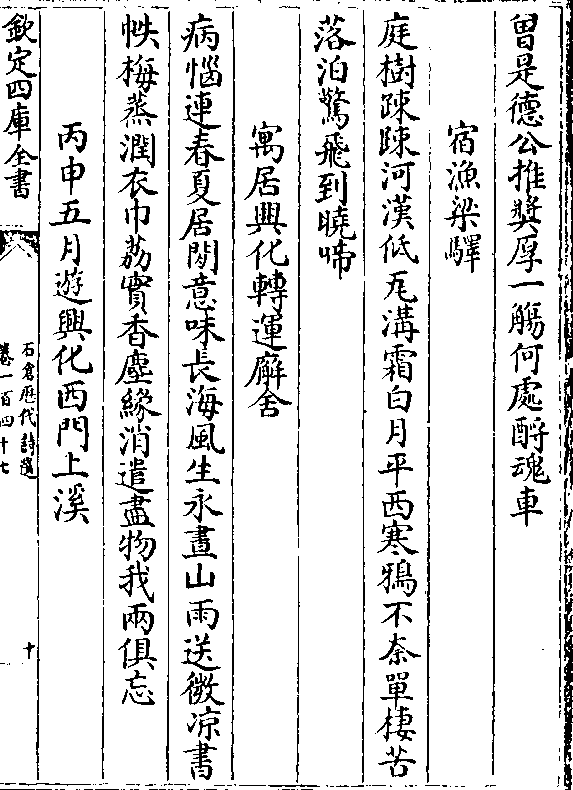 曽是德公推奬厚一觴何處酹魂車
宿漁梁驛
庭樹踈踈河漢低瓦溝霜白月平西寒鴉不奈單棲苦
落泊驚飛到曉啼
寓居興化轉運廨舍
病惱連春夏居閒意味長海風生永晝山雨送微凉書
帙梅蒸潤衣巾荔實香塵緣消遣盡物我兩俱忘
丙申五月遊興化西門上溪
欽定四庫全書
石倉歷代詩選
卷一百四十七
十